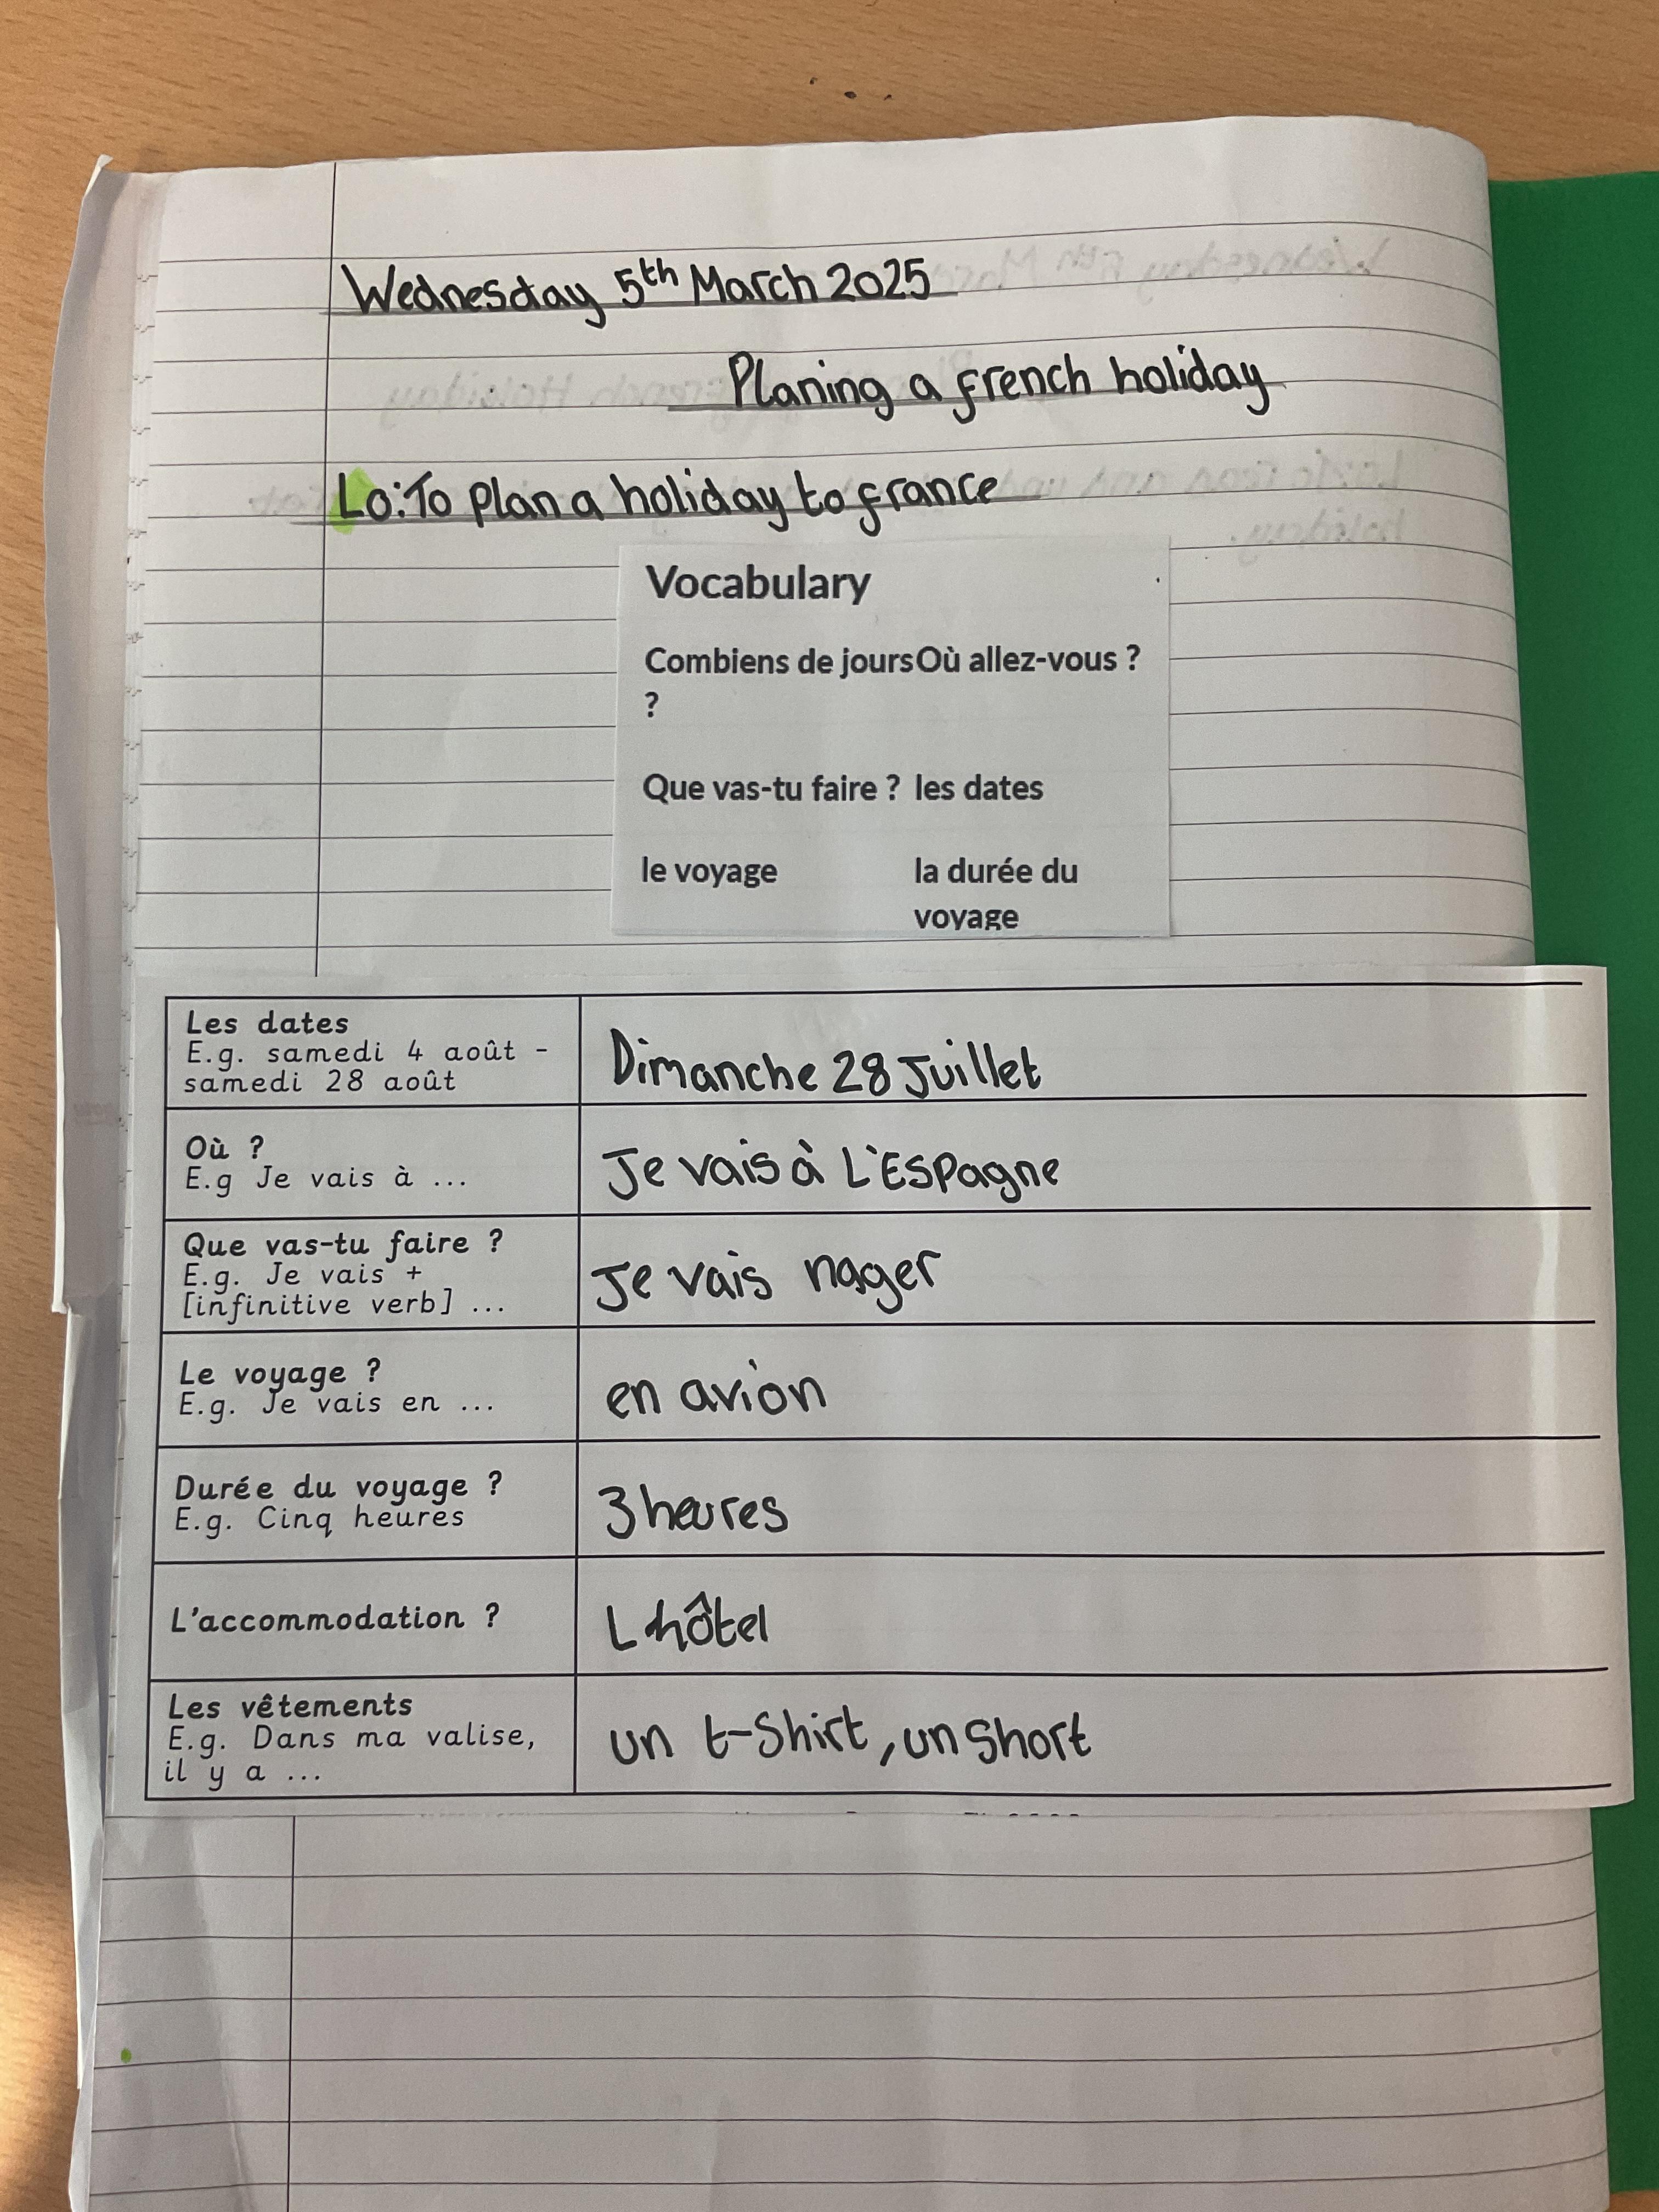 Wednesday 5th March 2025
Planing a french holiday
Lo: To plan a holiday to france
Vocabulary
Combiens de jours Où allez-vous ?
?
Que vas-tu faire ? les dates
le voyage la durée du
voyage
Les dates
E.g. samedi 4 août -
samedi 28 août
Dimanche 28 Juillet
Où ?
E.g Je vais à ...
Je vais à L'Espagne
Que vas-tu faire ?
E.g. Je vais +
[infinitive verb] ...
Je vais nager
Le voyage ?
E.g. Je vais en ...
en avion
Durée du voyage ?
E.g. Cinq heures
3 heures
L'accommodation ?
L hôtel
Les vêtements
E.g. Dans ma valise,
il y a ...
un t-shirt, un short